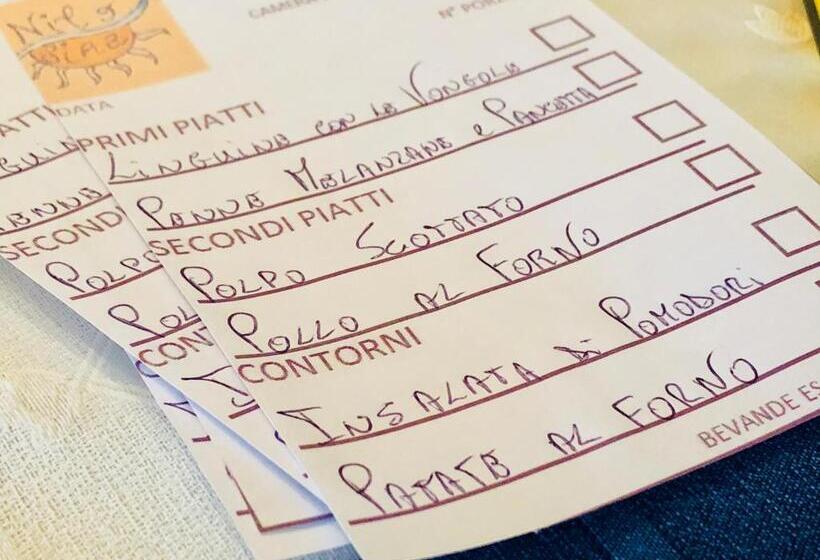 CAMERA
N° POR
DATA
PRIMI PIATTI
LINGUINE CON LE VONGOLE
PENNE MELANZANE e PANCETTA
SECONDI PIATTI
POLPO SCOTTATO
POLLO AL FORNO
CONTORNI
INSALATA di POMODORI
PATATE AL FORNO
BEVANDE ES
ATTI
SECONDI
POLPO
POL
CONT